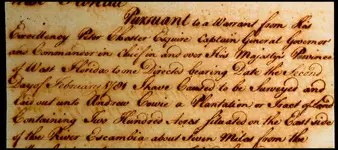 Pursuant to a Warrant from His
Excellency Peter Chester Esquire Captain General Governor
and Commander in Chief in and over His Majesty's Province
of West Florida to me Directed bearing Date the Second
Day of February 1781 I have Caused to be Surveyed and
laid out unto Andrew Cowie a Plantation or Tract of Land
Containing Two Hundred Acres situated on the East side
of the River Escambia about Seven Miles from the